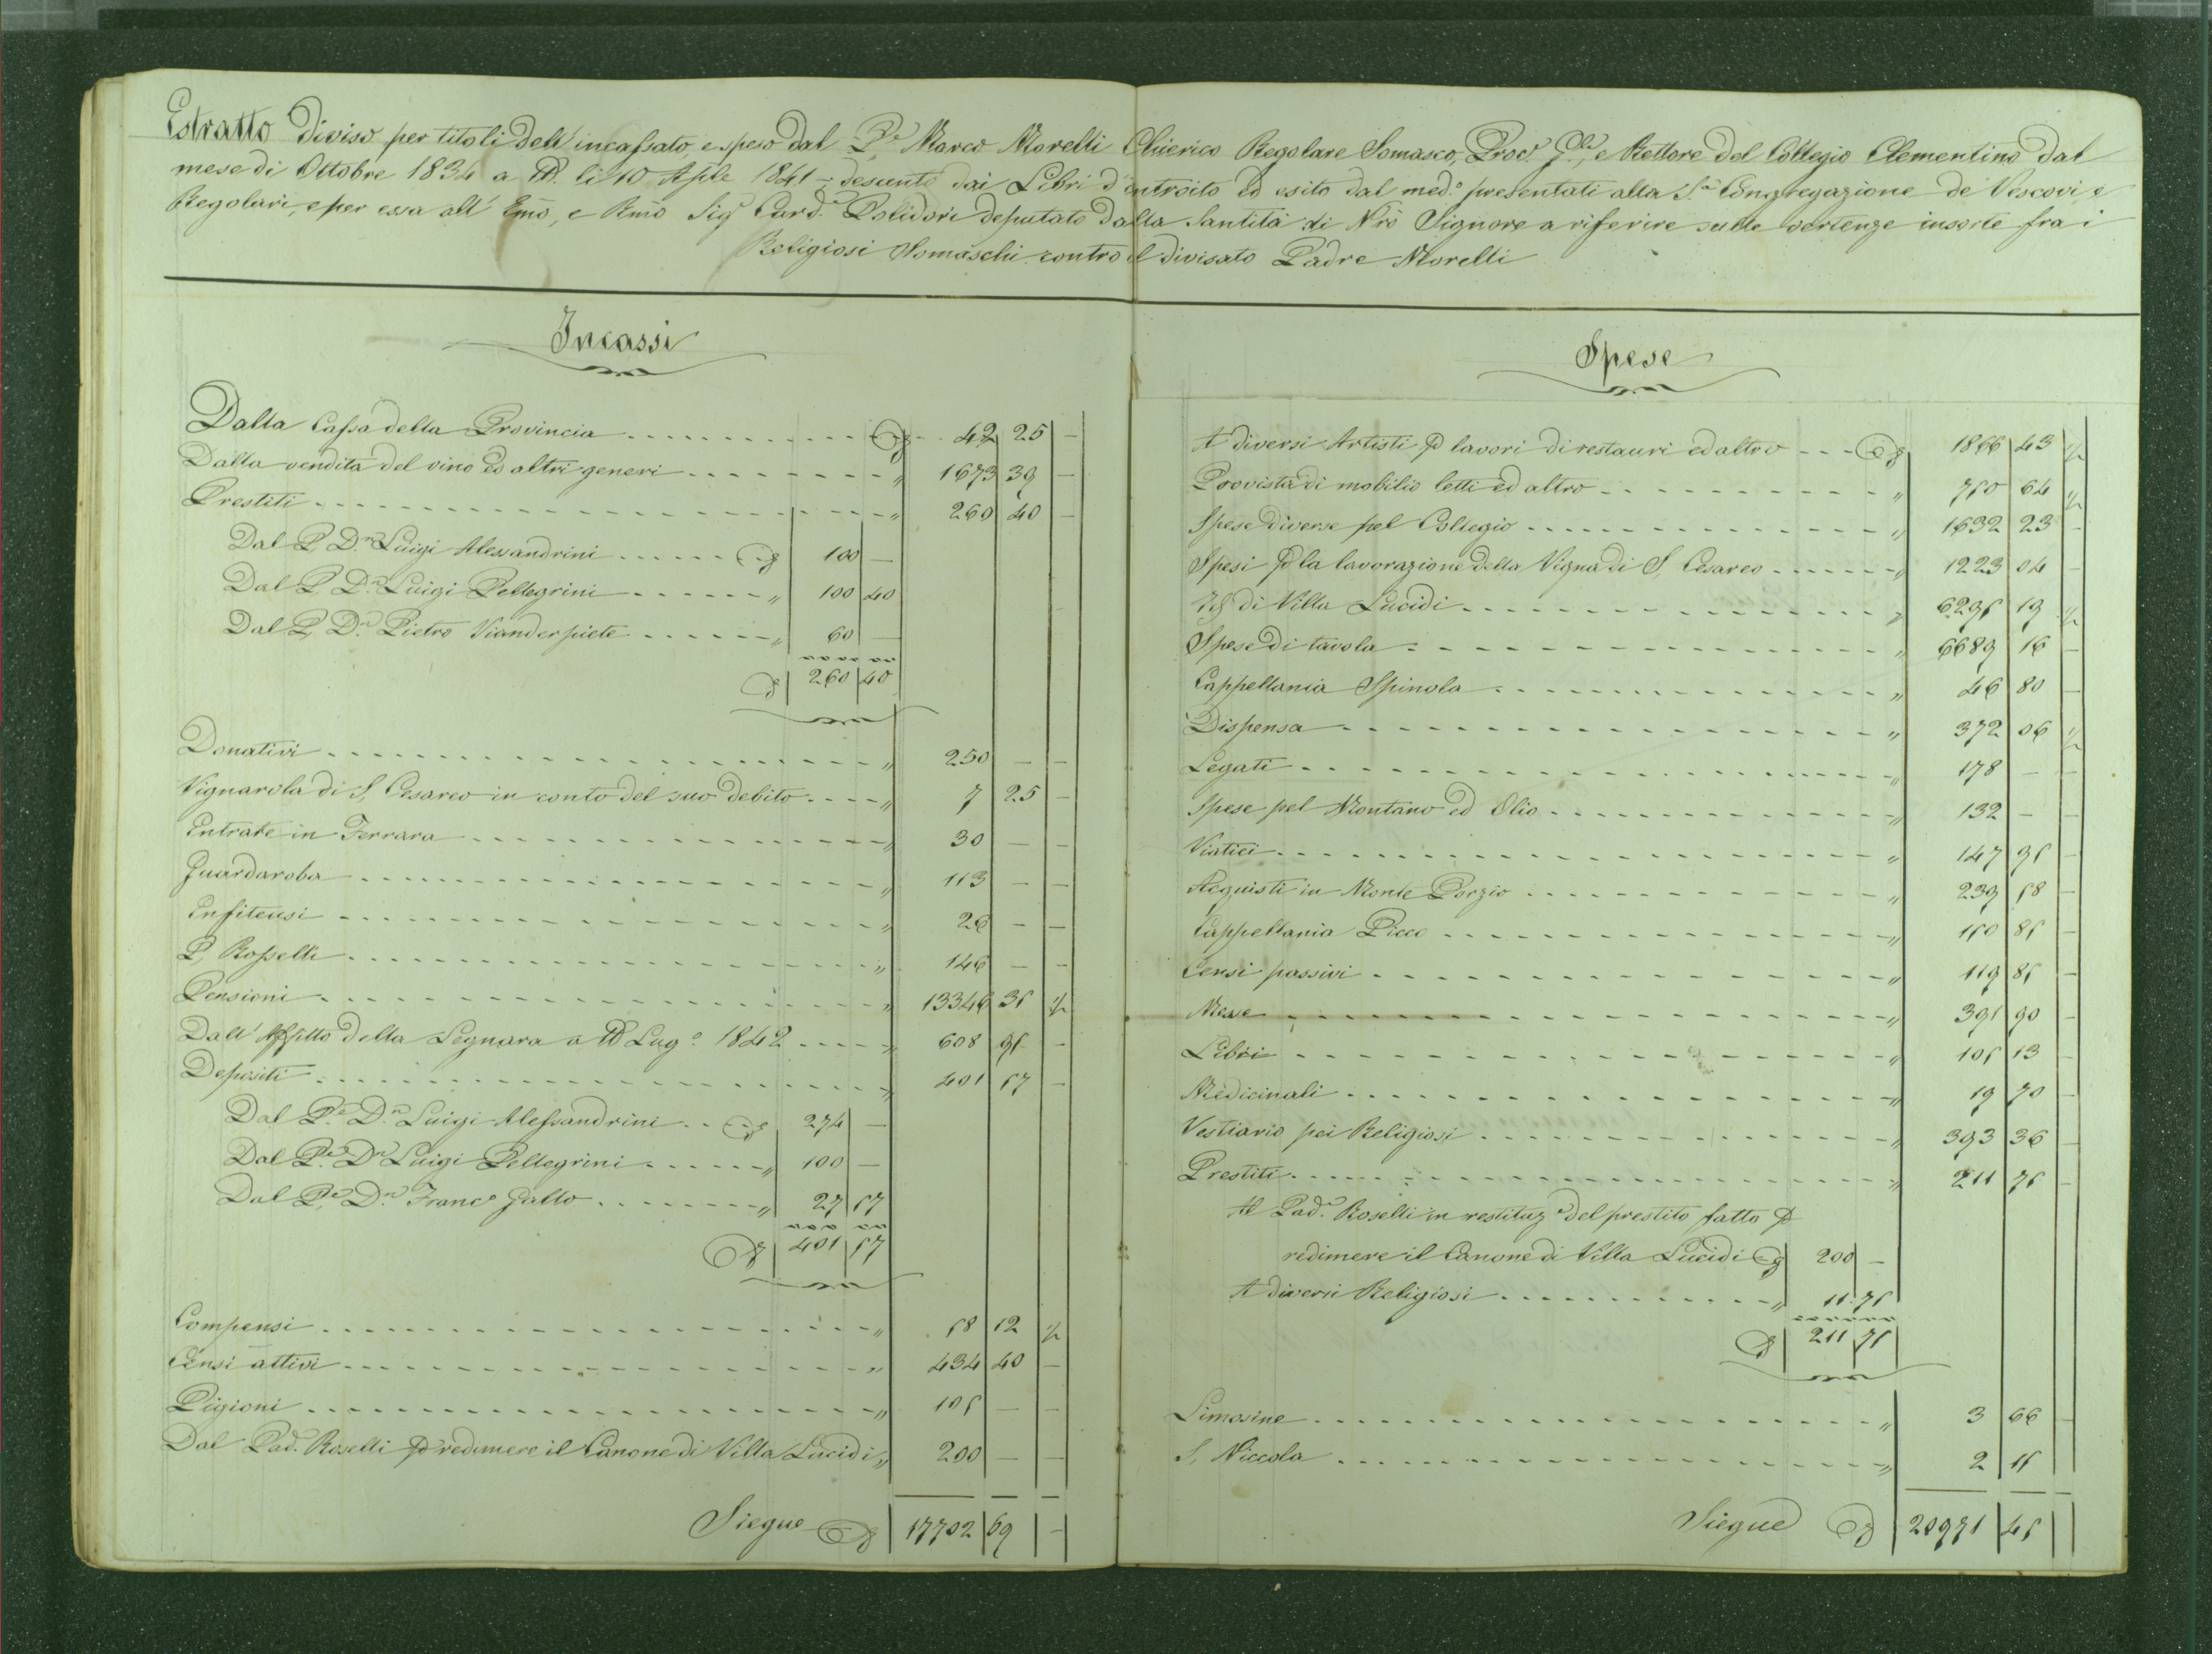 Estratto Diviso per titoli dell'incassato, e speso dal P.e Marco Morelli Chierico Regolare Somasco, Proc.r G.le, e Rettore del Collegio Clementino dal
mese di Ottobre 1834 a tt. li 10 Aple 1841 = desunto dai Libri d'introito ed esito dal med.o presentati alla S.a Congregazione de' Vescovi, e
Regolari, e per essa all' Emo, e Rmo Sig.r Card.e Polidori deputato dalla Santità di Nro Signore a riferire sulle vertenze insorte fra i
Religiosi Somaschi contro il divisato Padre Morelli
Incassi
Dalla Cassa della Provincia 42 25 —
Dalla vendita del vino ed altri generi " 1673 39 —
Prestiti " 260 40 —
Dal P. D.n Luigi Alessandrini 100 —
Dal P. D.n Luigi Pellegrini " 100 40
Dal P. D.n Pietro Vianderpiete " 60 —
260 40
Donativi " 250 — —
Vignarola di S. Cesareo in conto del suo debito " 7 25 —
Entrate in Ferrara " 30 — —
Guardaroba " 113 — —
Enfiteusi " 26 — —
P. Rosselli " 146 — —
Pensioni " 13346 35 ½
Dall' Affitto della Legnara a tt Lug.o 1842 " 608 95 —
Depositi " 401 57 —
Dal P.e D.n Luigi Alessandrini 274 —
Dal P.e D.n Luigi Pellegrini " 100 —
Dal P.e D.n Franc.o Gallo " 27 57
401 57
Compensi " 58 12 ½
Censi attivi " 434 40 —
Pigioni " 105 — —
Dal Pad. Roselli p redimere il Canone di Villa Lucidi " 200 — —
Siegue 17702 69 —
Spese
A diversi Artisti p lavori di restauri ed altro 1866 43 ½
Provista di mobilio letti ed altro " 750 64 ½
Spese diverse pel Collegio " 1632 23 —
Spesi p la lavorazione della Vigna di S. Cesareo " 1223 04 —
di Villa Lucidi " 6295 19 ½
Spese di tavola " 6689 16 —
Cappellania Spinola " 46 80 —
Dispensa " 372 06 ½
Legati " 178 — —
Spese pel Montano ed Olio " 132 — —
Viatici " 147 95 —
Acquisti in Monte Porzio " 239 58 —
Cappellania Picco " 150 85 —
Censi passivi " 119 85 —
Messe " 391 90 —
Libri " 105 13 —
Medicinali " 19 70 —
Vestiario pei Religiosi " 393 36 —
Prestiti " 211 75 —
Al Pad.e Roselli in restituz.e del prestito fatto p
redimere il Canone di Villa Lucidi 200 —
A diversi Religiosi " 11.75
211 75
Limosine " 3 66 —
S. Niccola " 2 15
Siegue 20971 45